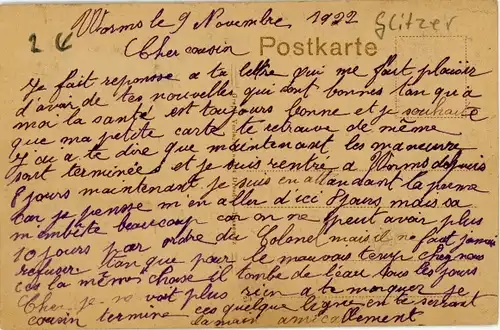 Worms le 9 Novembre 1922
Glitzer
2 €
Cher cousin
Postkarte
Je fait reponsse a ta lettre qui me fait plaisir
d'avoir de tes nouvelles qui sont bonnes tan qu'a
moi la santé est toujours bonne et je souhaite
que ma petite carte te retrouve de même
J'ai a te dire que maintenant les maneuvre
sont terminées et je suis rentré a Worms depuis
8 jours maintenant je suis en attandant la perme
car je pensse m'en aller d'ici 8 jours mais sa
m'embête beaucoup car on ne peut avoir plus
10 jours par ordre du Colonel mais il ne faut jamais
refuser tan que pour le mauvais temp chez nous
ces la même chose il tombe de l'eau tous les jours
Cher je ne voit plus rien a te marquer je
cousin termine ces quelque ligne en te serrant
la main amicallement